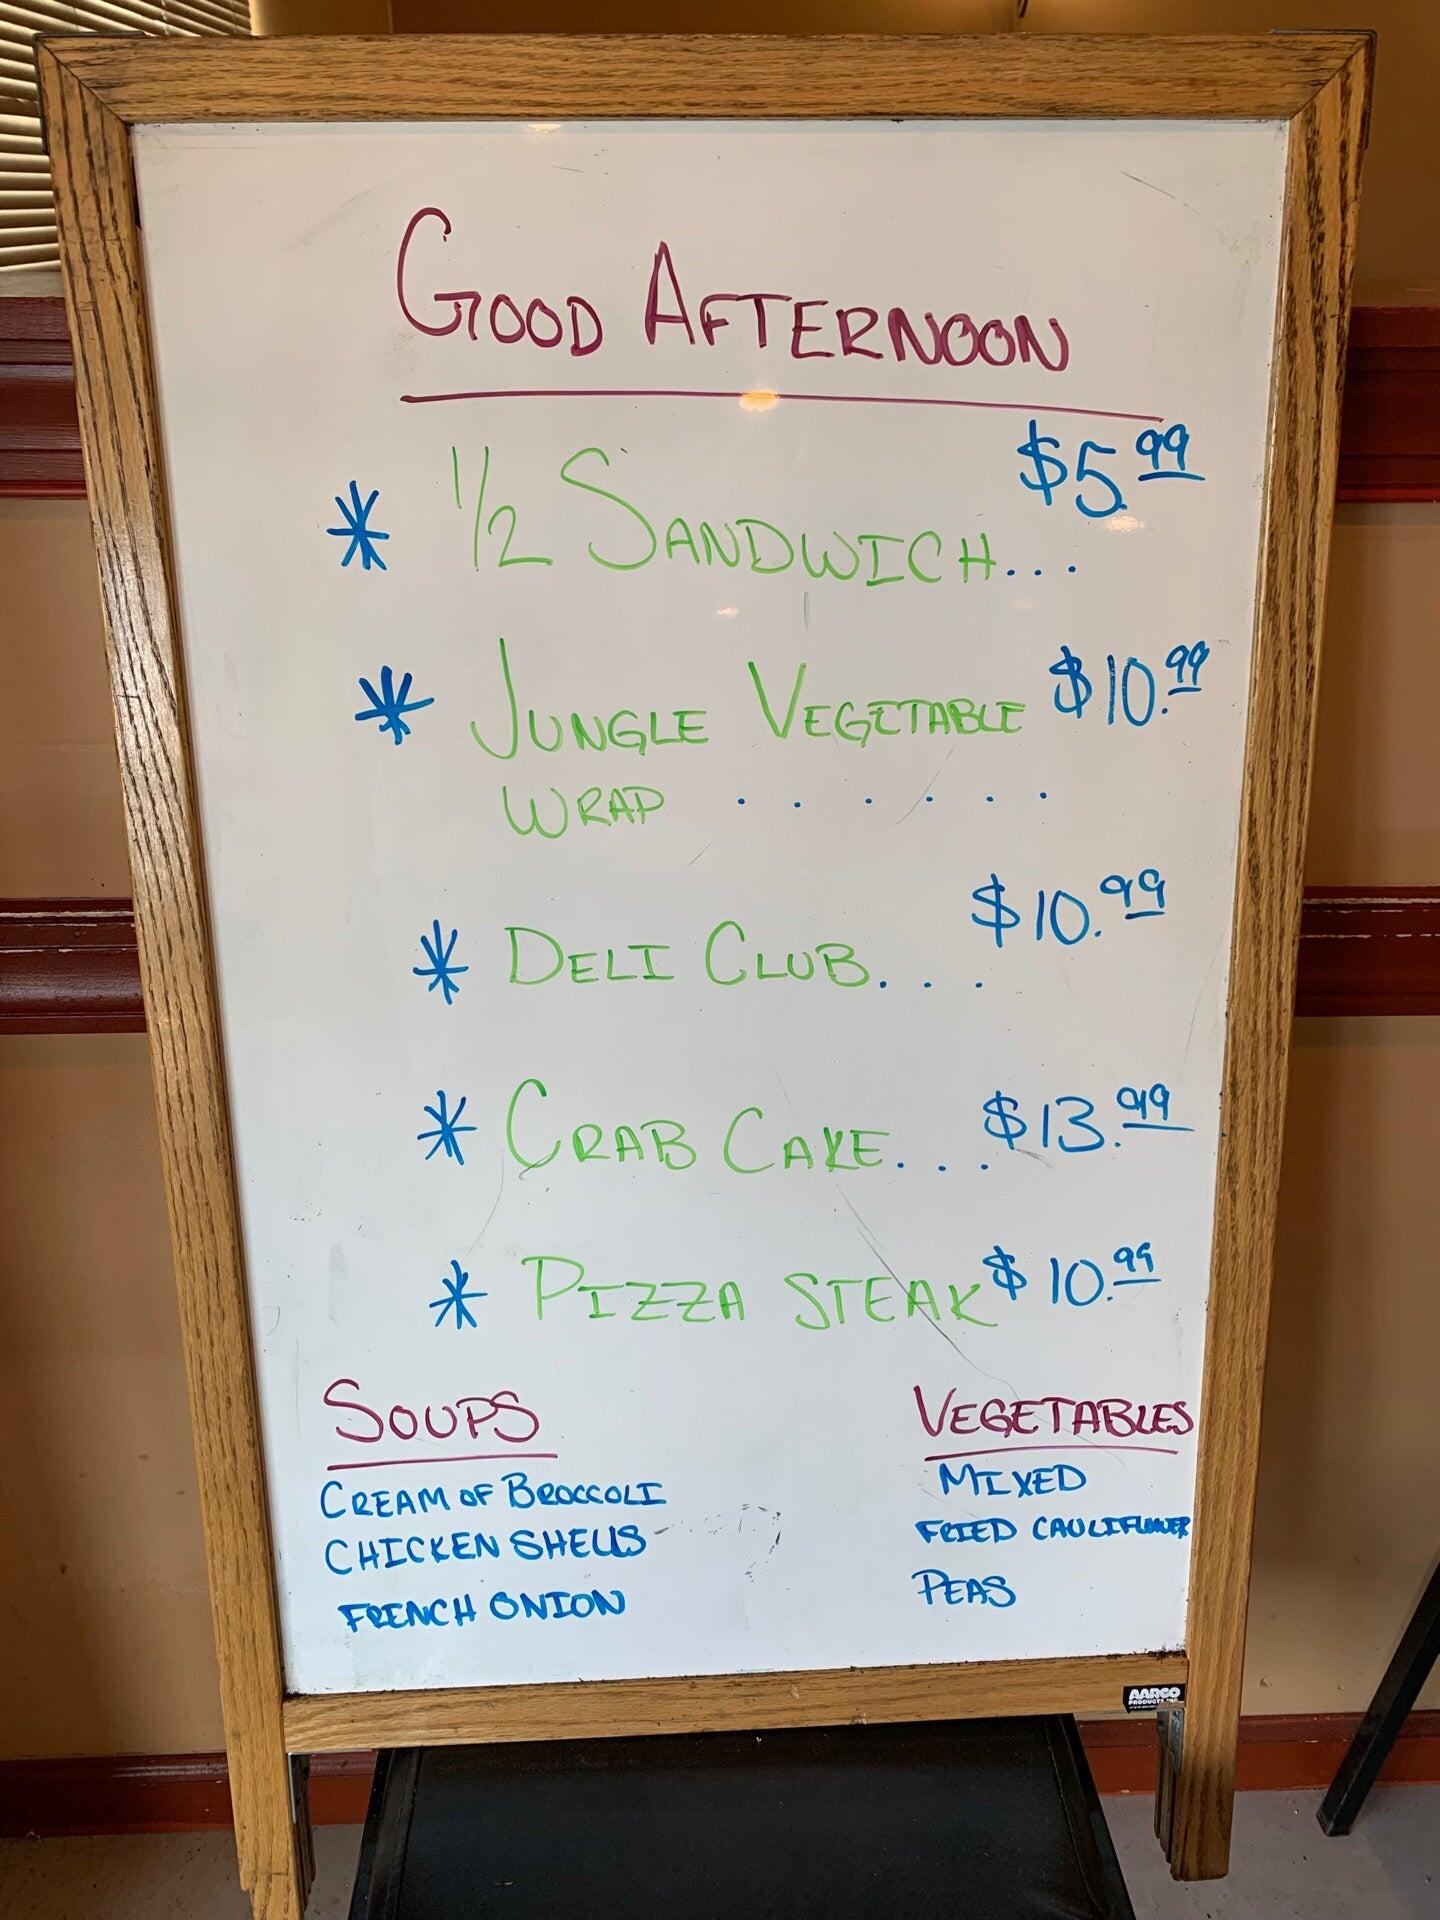 GOOD AFTERNOON
* 1/2 SANDWICH... $5.99
* JUNGLE VEGETABLE $10.99
WRAP . . . . . .
* DELI CLUB. . . $10.99
* CRAB CAKE. . . $13.99
* PIZZA STEAK $10.99
SOUPS
CREAM OF BROCCOLI
CHICKEN SHELLS
FRENCH ONION
VEGETABLES
MIXED
FRIED CAULIFLOWER
PEAS
AARCO
PRODUCTS, INC.